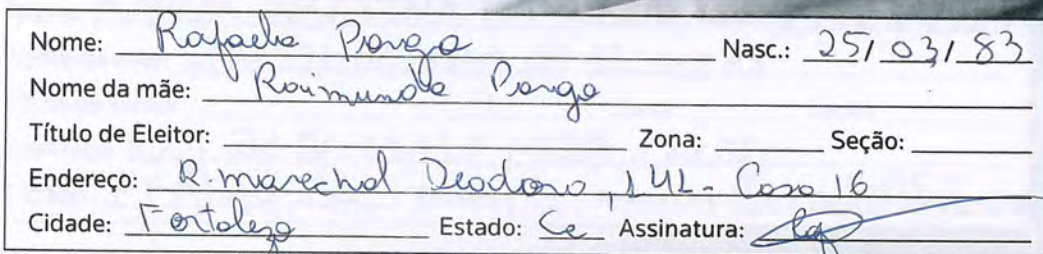 Nome: Rafaela Ponga Nasc.: 25/03/83
Nome da mãe: Raimunda Ponga
Título de Eleitor: Zona: Seção:
Endereço: R. marechal Deodoro, 142 - Casa 16
Cidade: Fortaleza Estado: Ce Assinatura: